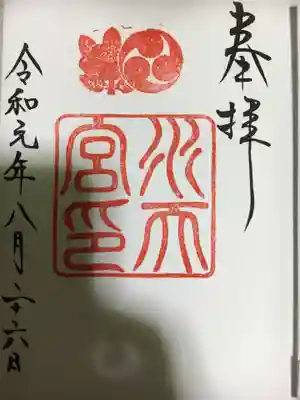 奉拝
水天宮印
令和元年八月二十六日